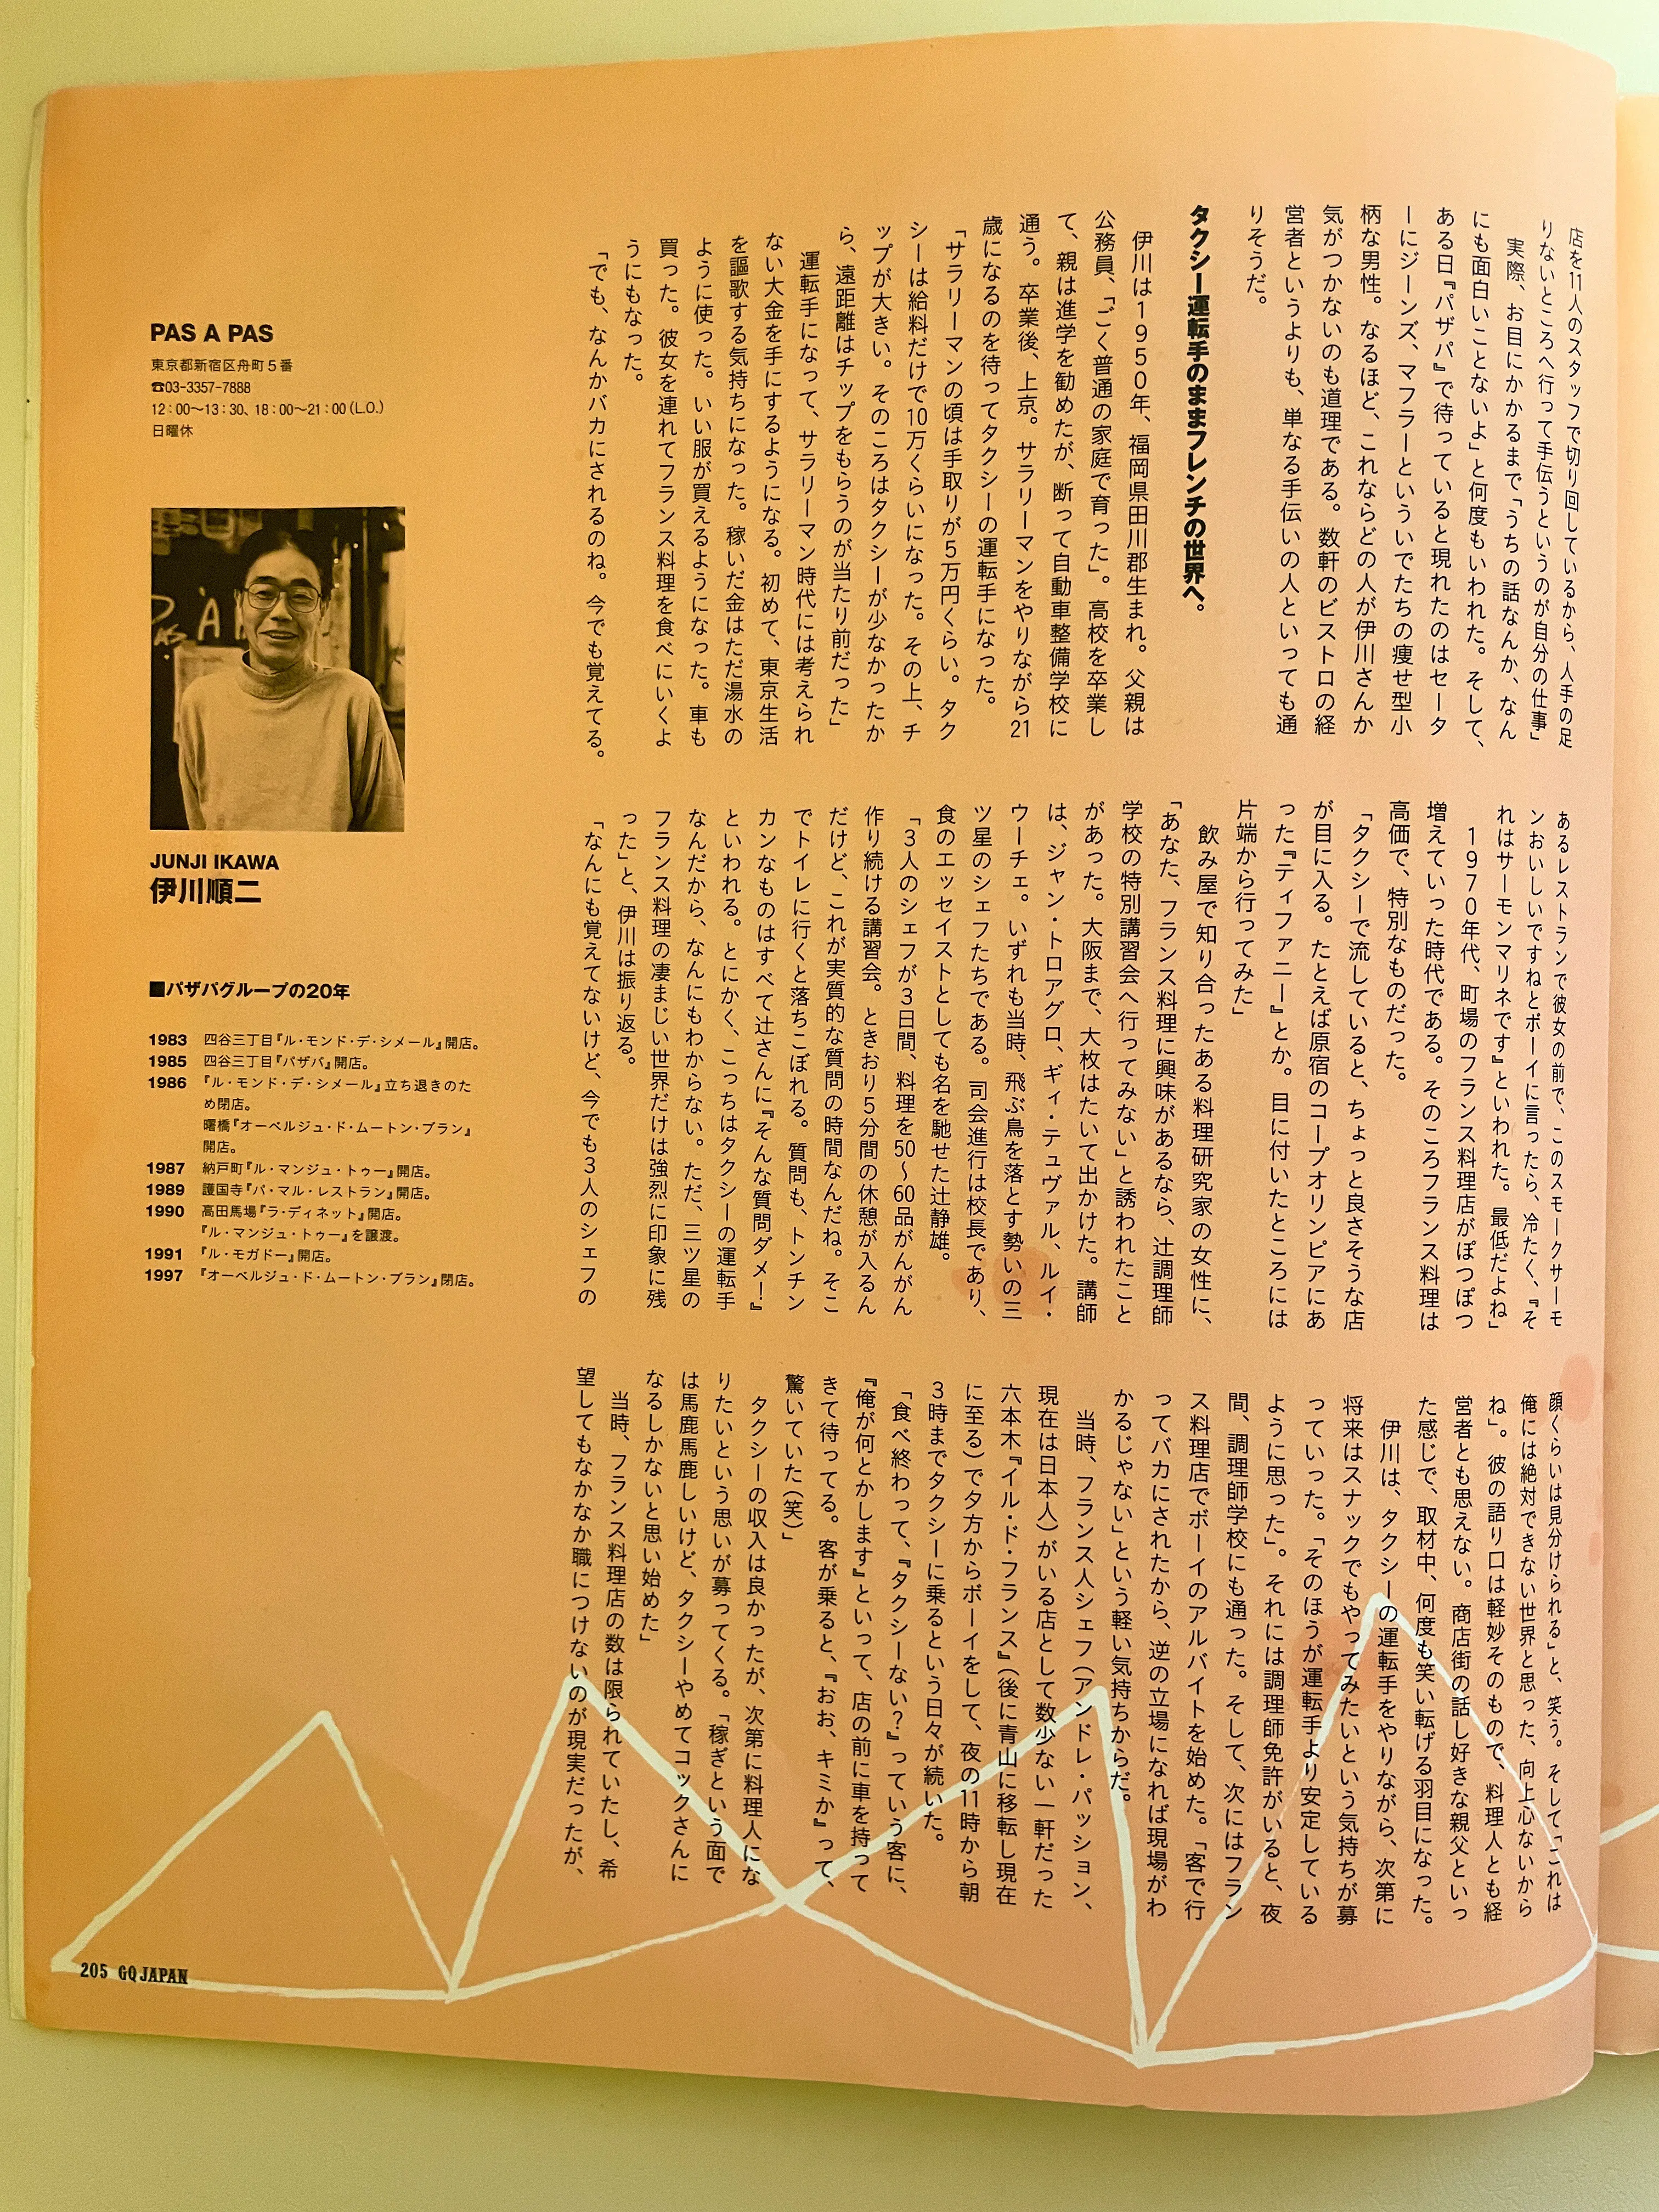 店を11人のスタッフで切り回しているから、人手の足
りないところへ行って手伝うというのが自分の仕事」
実際、お目にかかるまで「うちの話なんか、なん
にも面白いことないよ」と何度もいわれた。そして、
ある日『パザパ』で待っていると現れたのはセータ
ーにジーンズ、マフラーといういでたちの痩せ型小
柄な男性。なるほど、これならどの人が伊川さんか
気がつかないのも道理である。数軒のビストロの経
営者というよりも、単なる手伝いの人といっても通
りそうだ。
タクシー運転手のままフレンチの世界へ。
伊川は1950年、福岡県田川郡生まれ。父親は
公務員、「ごく普通の家庭で育った」。高校を卒業し
て、親は進学を勧めたが、断って自動車整備学校に
通う。卒業後、上京。サラリーマンをやりながら21
歳になるのを待ってタクシーの運転手になった。
「サラリーマンの頃は手取りが5万円くらい。タク
シーは給料だけで10万くらいになった。その上、チ
ップが大きい。そのころはタクシーが少なかったか
ら、遠距離はチップをもらうのが当たり前だった」
運転手になって、サラリーマン時代には考えられ
ない大金を手にするようになる。初めて、東京生活
を謳歌する気持ちになった。稼いだ金はただ湯水の
ように使った。いい服が買えるようになった。車も
買った。彼女を連れてフランス料理を食べにいくよ
うにもなった。
「でも、なんかバカにされるのね。今でも覚えてる。
あるレストランで彼女の前で、このスモークサーモ
ンおいしいですねとボーイに言ったら、冷たく、『そ
れはサーモンマリネです』といわれた。最低だよね」
1970年代、町場のフランス料理店がぽつぽつ
増えていった時代である。そのころフランス料理は
高価で、特別なものだった。
「タクシーで流していると、ちょっと良さそうな店
が目に入る。たとえば原宿のコープオリンピアにあ
った『ティファニー』とか。目に付いたところには
片端から行ってみた」
飲み屋で知り合ったある料理研究家の女性に、
「あなた、フランス料理に興味があるなら、辻調理師
学校の特別講習会へ行ってみない」と誘われたこと
があった。大阪まで、大枚はたいて出かけた。講師
は、ジャン・トロアグロ、ギィ・テュヴァル、ルイ・
ウーチェ。いずれも当時、飛ぶ鳥を落とす勢いの三
ツ星のシェフたちである。司会進行は校長であり、
食のエッセイストとしても名を馳せた辻静雄。
「3人のシェフが3日間、料理を50〜60品がんがん
作り続ける講習会。ときおり5分間の休憩が入るん
だけど、これが実質的な質問の時間なんだね。そこ
でトイレに行くと落ちこぼれる。質問も、トンチン
カンなものはすべて辻さんに『そんな質問ダメ！』
といわれる。とにかく、こっちはタクシーの運転手
なんだから、なんにもわからない。ただ、三ツ星の
フランス料理の凄まじい世界だけは強烈に印象に残
った」と、伊川は振り返る。
「なんにも覚えてないけど、今でも3人のシェフの
顔くらいは見分けられる」と、笑う。そして「これは
俺には絶対できない世界と思った、向上心ないから
ね」。彼の語り口は軽妙そのもので、料理人とも経
営者とも思えない。商店街の話し好きな親父といっ
た感じで、取材中、何度も笑い転げる羽目になった。
伊川は、タクシーの運転手をやりながら、次第に
将来はスナックでもやってみたいという気持ちが募
っていった。「そのほうが運転手より安定している
ように思った」。それには調理師免許がいると、夜
間、調理師学校にも通った。そして、次にはフラン
ス料理店でボーイのアルバイトを始めた。「客で行
ってバカにされたから、逆の立場になれば現場がわ
かるじゃない」という軽い気持ちからだ。
当時、フランス人シェフ（アンドレ・パッション、
現在は日本人）がいる店として数少ない一軒だった
六本木『イル・ド・フランス』（後に青山に移転し現在
に至る）で夕方からボーイをして、夜の11時から朝
3時までタクシーに乗るという日々が続いた。
「食べ終わって、『タクシーない？』っていう客に、
『俺が何とかします』といって、店の前に車を持って
きて待ってる。客が乗ると、『おお、キミか』って、
驚いていた（笑）」
タクシーの収入は良かったが、次第に料理人にな
りたいという思いが募ってくる。「稼ぎという面で
は馬鹿馬鹿しいけど、タクシーやめてコックさんに
なるしかないと思い始めた」
当時、フランス料理店の数は限られていたし、希
望してもなかなか職につけないのが現実だったが、
PAS A PAS
東京都新宿区舟町5番
☎03-3357-7888
12：00〜13：30、18：00〜21：00（L.O.）
日曜休
JUNJI IKAWA
伊川順二
■パザパグループの20年
1983 四谷三丁目『ル・モンド・デ・シメール』開店。
1985 四谷三丁目『パザパ』開店。
1986 『ル・モンド・デ・シメール』立ち退きのた
め閉店。
曙橋『オーベルジュ・ド・ムートン・ブラン』
開店。
1987 納戸町『ル・マンジュ・トゥー』開店。
1989 護国寺『パ・マル・レストラン』開店。
1990 高田馬場『ラ・ディネット』開店。
『ル・マンジュ・トゥー』を譲渡。
1991 『ル・モガドー』開店。
1997 『オーベルジュ・ド・ムートン・ブラン』閉店。
205 GQ JAPAN